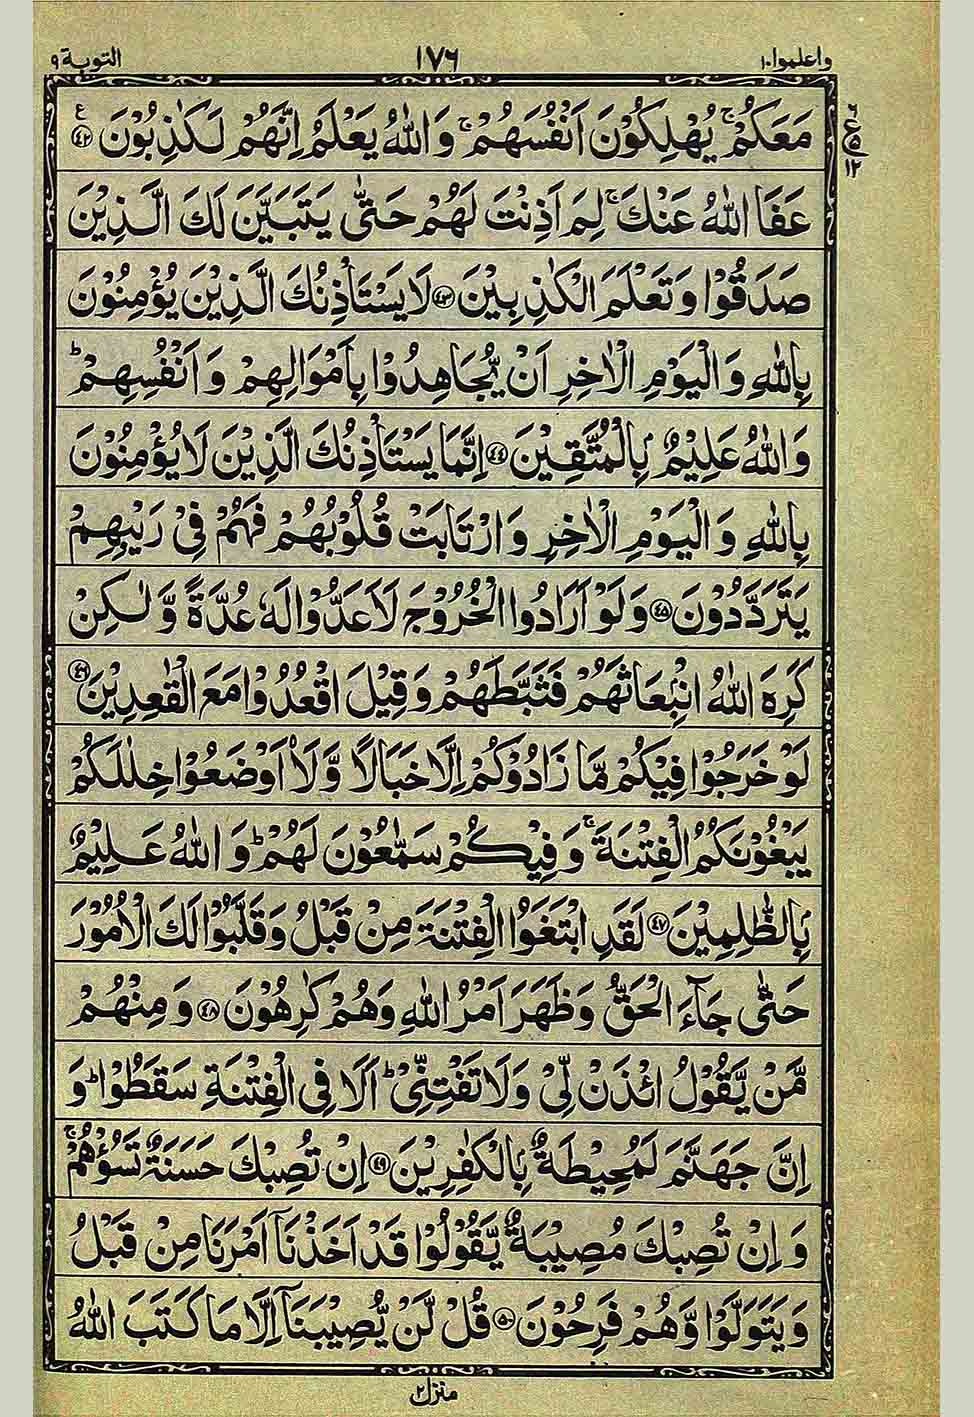 واعلموا ١٠ ١٧٦ التوبة ٩
مَعَكُمْ ۚ يُهْلِكُوْنَ اَنْفُسَهُمْ ۚ وَاللّٰهُ يَعْلَمُ اِنَّهُمْ لَكٰذِبُوْنَ ﴿٤٢﴾ ع
ع ٦ ٥ ١٢
عَفَا اللّٰهُ عَنْكَ ۚ لِمَ اَذِنْتَ لَهُمْ حَتّٰى يَتَبَيَّنَ لَكَ الَّذِيْنَ
صَدَقُوْا وَتَعْلَمَ الْكٰذِبِيْنَ ﴿٤٣﴾ لَا يَسْتَاْذِنُكَ الَّذِيْنَ يُؤْمِنُوْنَ
بِاللّٰهِ وَالْيَوْمِ الْاٰخِرِ اَنْ يُّجَاهِدُوْا بِاَمْوَالِهِمْ وَاَنْفُسِهِمْ ؕ
وَاللّٰهُ عَلِيْمٌۢ بِالْمُتَّقِيْنَ ﴿٤٤﴾ اِنَّمَا يَسْتَاْذِنُكَ الَّذِيْنَ لَا يُؤْمِنُوْنَ
بِاللّٰهِ وَالْيَوْمِ الْاٰخِرِ وَارْتَابَتْ قُلُوْبُهُمْ فَهُمْ فِيْ رَيْبِهِمْ
يَتَرَدَّدُوْنَ ﴿٤٥﴾ وَلَوْ اَرَادُوا الْخُرُوْجَ لَاَعَدُّوْا لَهٗ عُدَّةً وَّلٰكِنْ
كَرِهَ اللّٰهُ انْۢبِعَاثَهُمْ فَثَبَّطَهُمْ وَقِيْلَ اقْعُدُوْا مَعَ الْقٰعِدِيْنَ ﴿٤٦﴾
لَوْ خَرَجُوْا فِيْكُمْ مَّا زَادُوْكُمْ اِلَّا خَبَالًا وَّلَا۟اَوْضَعُوْا خِلٰلَكُمْ
يَبْغُوْنَكُمُ الْفِتْنَةَ ۚ وَفِيْكُمْ سَمّٰعُوْنَ لَهُمْ ؕ وَاللّٰهُ عَلِيْمٌۢ
بِالظّٰلِمِيْنَ ﴿٤٧﴾ لَقَدِ ابْتَغَوُا الْفِتْنَةَ مِنْ قَبْلُ وَقَلَّبُوْا لَكَ الْاُمُوْرَ
حَتّٰى جَآءَ الْحَقُّ وَظَهَرَ اَمْرُ اللّٰهِ وَهُمْ كٰرِهُوْنَ ﴿٤٨﴾ وَمِنْهُمْ
مَّنْ يَّقُوْلُ ائْذَنْ لِّيْ وَلَا تَفْتِنِّيْ ؕ اَلَا فِي الْفِتْنَةِ سَقَطُوْا ؕ وَ
اِنَّ جَهَنَّمَ لَمُحِيْطَةٌۢ بِالْكٰفِرِيْنَ ﴿٤٩﴾ اِنْ تُصِبْكَ حَسَنَةٌ تَسُؤْهُمْ ۚ
وَاِنْ تُصِبْكَ مُصِيْبَةٌ يَّقُوْلُوْا قَدْ اَخَذْنَاۤ اَمْرَنَا مِنْ قَبْلُ
وَيَتَوَلَّوْا وَّهُمْ فَرِحُوْنَ ﴿٥٠﴾ قُلْ لَّنْ يُّصِيْبَنَاۤ اِلَّا مَا كَتَبَ اللّٰهُ
منزل ٢